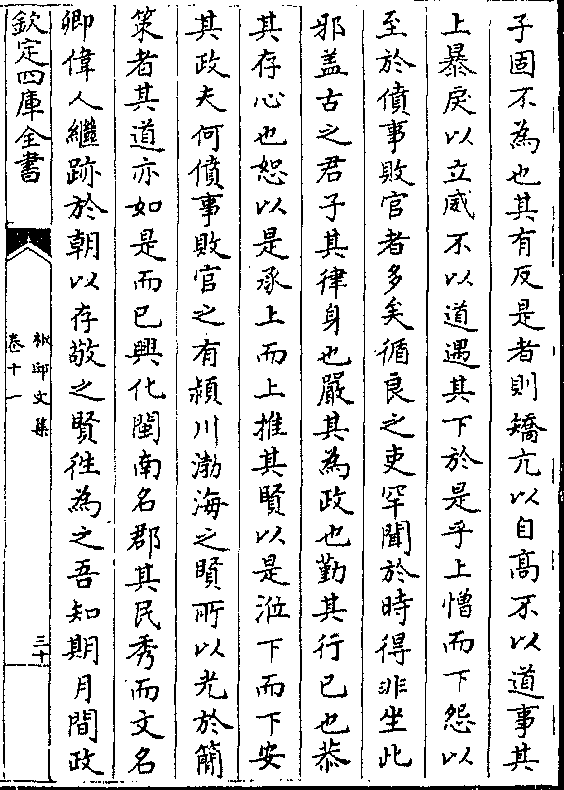 子固不為也其有反是者則矯亢以自高不以道事其
上暴戾以立威不以道遇其下於是乎上憎而下怨以
至於僨事敗官者多矣循良之吏罕聞於時得非坐此
邪盖古之君子其律身也嚴其為政也勤其行已也恭
其存心也恕以是承上而上推其賢以是涖下而下安
其政夫何僨事敗官之有潁川渤海之賢所以光於簡
策者其道亦如是而已興化閩南名郡其民秀而文名
卿偉人繼跡於朝以存敬之賢徃為之吾知期月間政
欽定四庫全書
文集
卷十一
三十